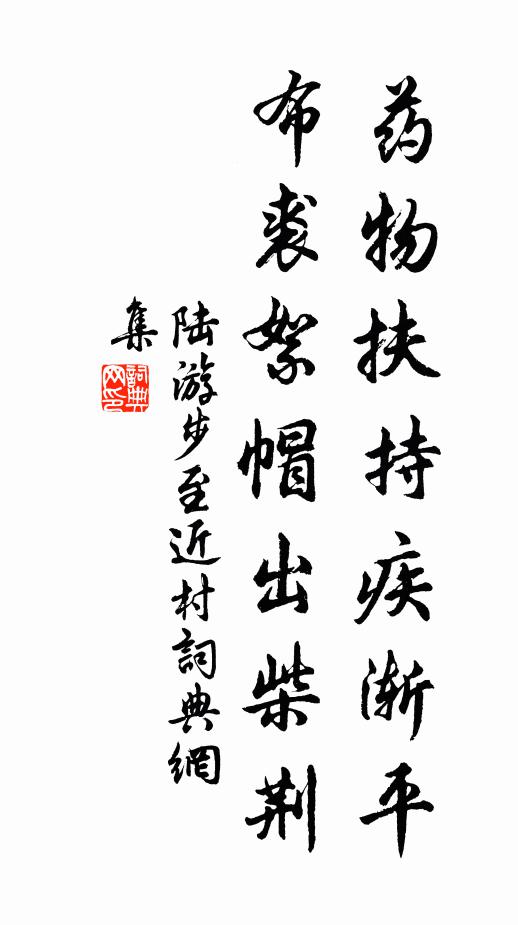 药物扶持疾渐平
布裘絮帽出柴荆
陆游步至近村詞典網
集
詞典
网印